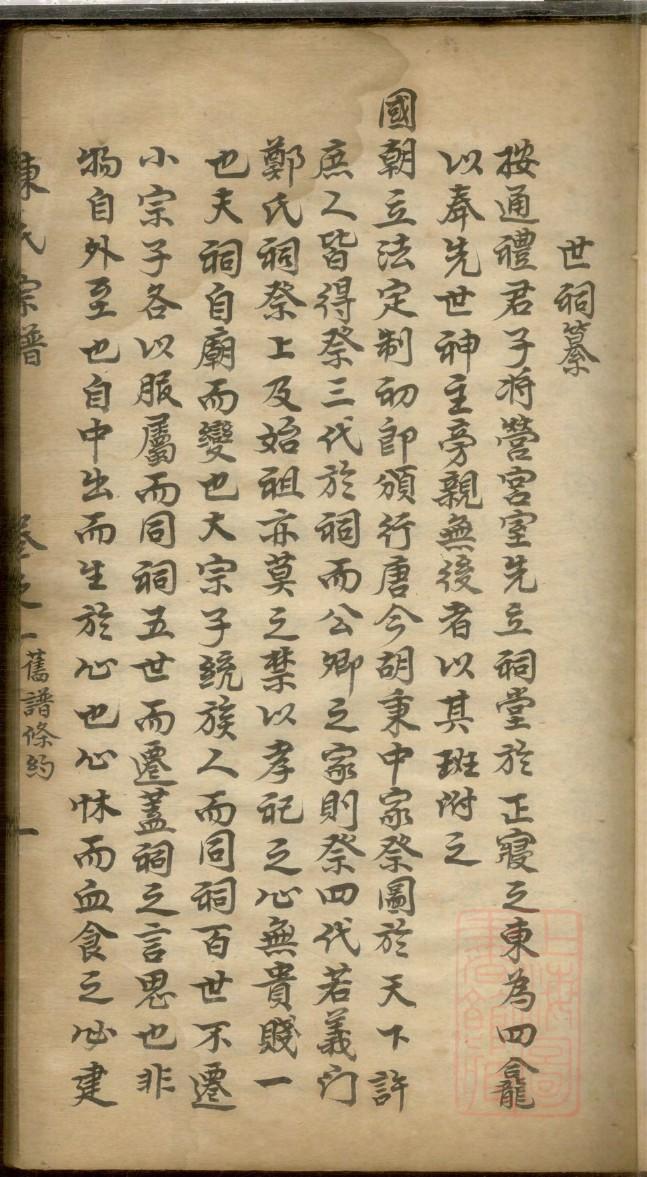 世祠纂
按通禮君子将營宮室先立祠堂於正寢之東為四龕
以奉先世神主旁親無後者以其班附之
國朝立法定制初即頒行唐令胡秉中家祭圖於天下許
庶人皆得祭三代於祠而公卿之家則祭四代若義门
鄭氏祠祭上及始祖亦莫之禁以孝祀之心無貴賤一
也夫祠自廟而變也大宗子統族人而同祠百世不遷
小宗子各以服屬而同祠五世而遷蓋祠之言思也非
物自外至也自中出而生於心也心怵而血食之必建
陳氏宗譜
卷之一
舊譜條約
一
上海圖書館藏